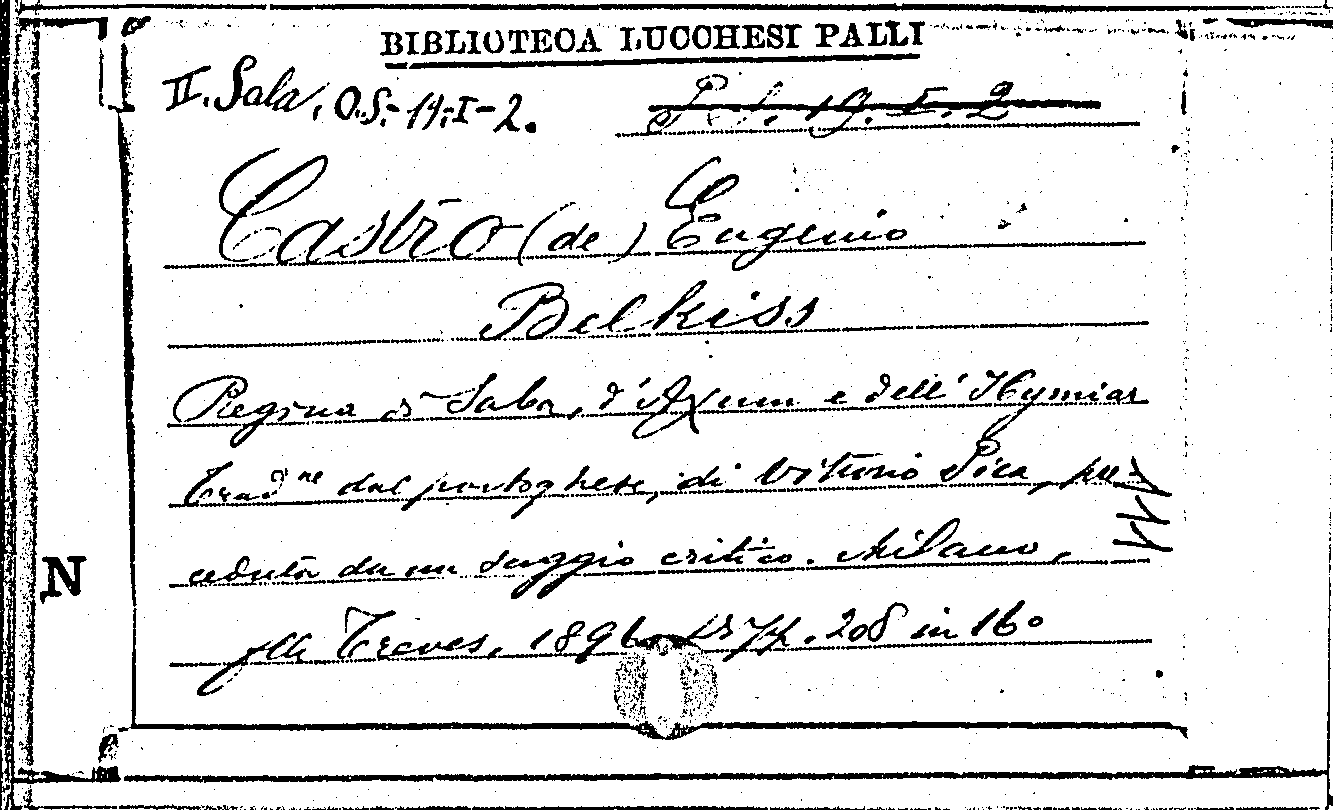 BIBLIOTECA LUCCHESI PALLI
II. Sala, O.S.-19-I-2.
19. I. 2
Castro (de) Eugenio
Belkiss
Regina di Saba, d'Axum e dell'Hymiar
Trad.ne dal portoghese, di Vittorio Pica, pre-
ceduta da un saggio critico. Milano,
flli Treves, 1896 pp. 208 in 16o
N